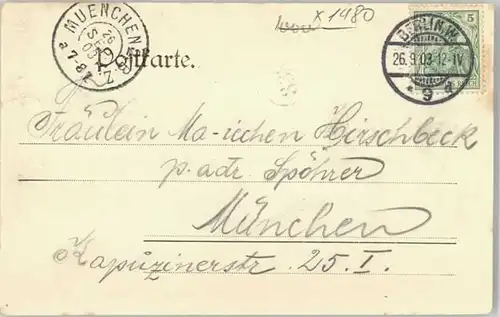 x 1480
MUENCHEN B.Z.
26 SEP 03
a 7-8
BERLIN.W.
26.9.03.12-1V
* 9 a
5
Postkarte.
Fräulein Ma-iechen Hirschbeck
p. adr. Spöhrer
München
Kapuzinerstr. 25. I.